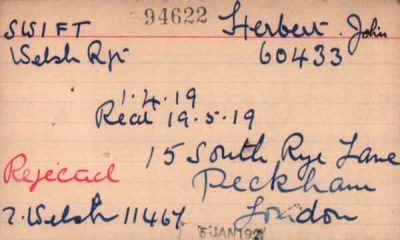 94622
SWIFT Herbert. John
Welsh Rgt 60433
1.4.19
Recd 19.5.19
15 South Rye Lane
Rejected Peckham
2. Welsh 11467 London
5 JAN 192